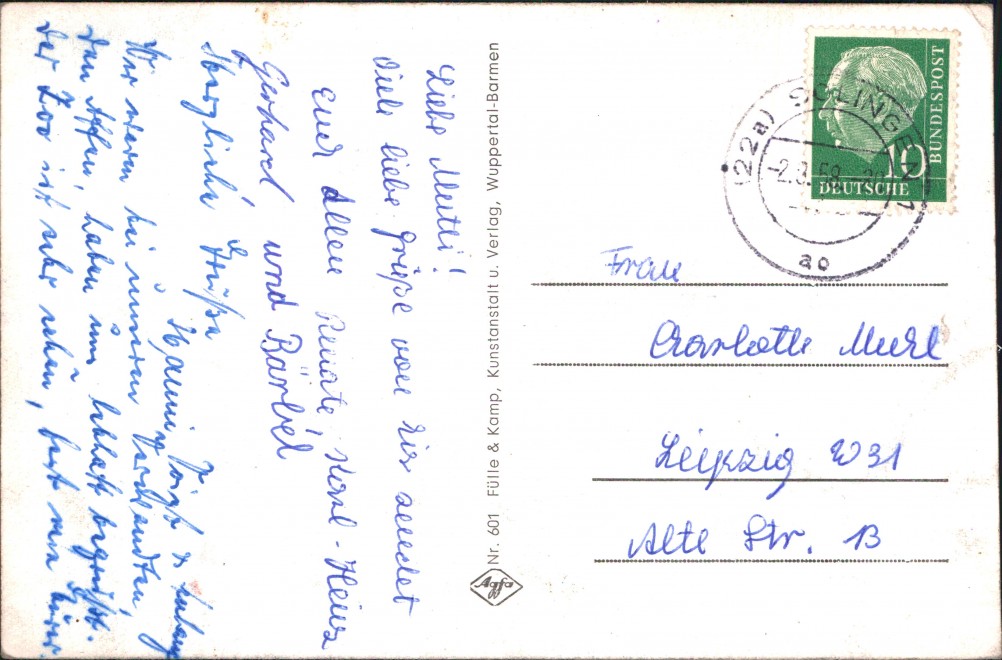 Liebe Mutti!
Viele liebe Grüße von hier sendet
Euch Allen Renate, Karl-Heinz
Gerhard und Bärbel
Herzliche Grüße
Wir waren bei unseren Verwandten,
den Affen, haben uns lebhaft begrüßt.
Der Zoo ist sehr schön,
Nr. 601 Fülle & Kamp, Kunstanstalt u. Verlag, Wuppertal-Barmen
Agfa
(22a) SOLINGEN
ao
10
BUNDESPOST
DEUTSCHE
Frau
Charlotte
Leipzig W31
Alte Str. 13